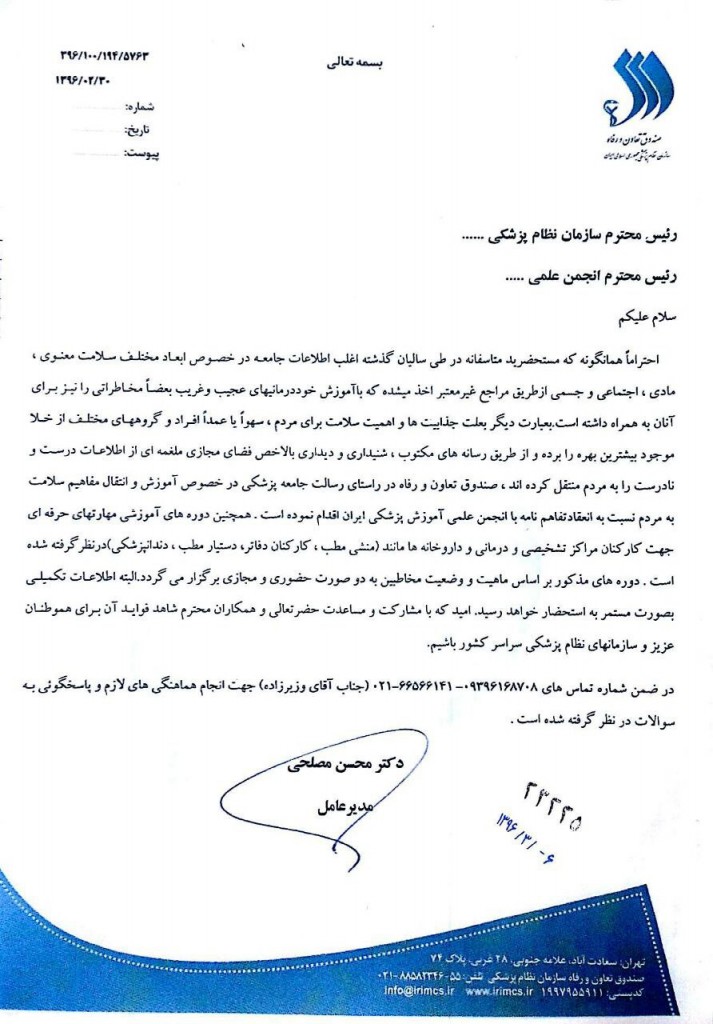 بسمه تعالی
۳۹۶/۱۰۰/۱۹۴/۵۷۶۳
۱۳۹۶/۰۲/۳۰
شماره:
تاریخ:
پیوست:
صندوق تعاون و رفاه
سازمان نظام پزشکی جمهوری اسلامی ایران
رئیس محترم سازمان نظام پزشکی ......
رئیس محترم انجمن علمی .....
سلام علیکم
احتراماً همانگونه که مستحضرید متاسفانه در طی سالیان گذشته اغلب اطلاعات جامعه در خصوص ابعاد مختلف سلامت معنوی ،
مادی ، اجتماعی و جسمی ازطریق مراجع غیرمعتبر اخذ میشده که باآموزش خوددرمانیهای عجیب وغریب بعضاً مخاطراتی را نیز برای
آنان به همراه داشته است.بعبارت دیگر بعلت جذابیت ها و اهمیت سلامت برای مردم ، سهواً یا عمداً افراد و گروههای مختلف از خلا
موجود بیشترین بهره را برده و از طریق رسانه های مکتوب ، شنیداری و دیداری بالاخص فضای مجازی ملغمه ای از اطلاعات درست و
نادرست را به مردم منتقل کرده اند ، صندوق تعاون و رفاه در راستای رسالت جامعه پزشکی در خصوص آموزش و انتقال مفاهیم سلامت
به مردم نسبت به انعقادتفاهم نامه با انجمن علمی آموزش پزشکی ایران اقدام نموده است . همچنین دوره های آموزشی مهارتهای حرفه ای
جهت کارکنان مراکز تشخیصی و درمانی و داروخانه ها مانند (منشی مطب ، کارکنان دفاتر، دستیار مطب ، دندانپزشکی)درنظرگرفته شده
است . دوره های مذکور بر اساس ماهیت و وضعیت مخاطبین به دو صورت حضوری و مجازی برگزار می گردد.البته اطلاعات تکمیلی
بصورت مستمر به استحضار خواهد رسید. امید که با مشارکت و مساعدت حضرتعالی و همکاران محترم شاهد فواید آن برای هموطنان
عزیز و سازمانهای نظام پزشکی سراسر کشور باشیم.
در ضمن شماره تماس های ۰۹۳۹۶۱۶۸۷۰۸- ۶۶۵۶۶۱۴۱-۰۲۱ (جناب آقای وزیرزاده) جهت انجام هماهنگی های لازم و پاسخگوئی به
سوالات در نظر گرفته شده است .
دکتر محسن مصلحی
مدیرعامل
۲۳۲۲۵
۱۳۹۶/۳/۰۶
تهران: سعادت آباد، علامه جنوبی، ۲۸ غربی، پلاک ۷۴
صندوق تعاون و رفاه سازمان نظام پزشکی تلفن: ۵۵-۸۸۵۸۲۳۴۶-۰۲۱
کدپستی: ۱۹۹۷۹۵۵۹۱۱ www.irimcs.ir Info@irimcs.ir